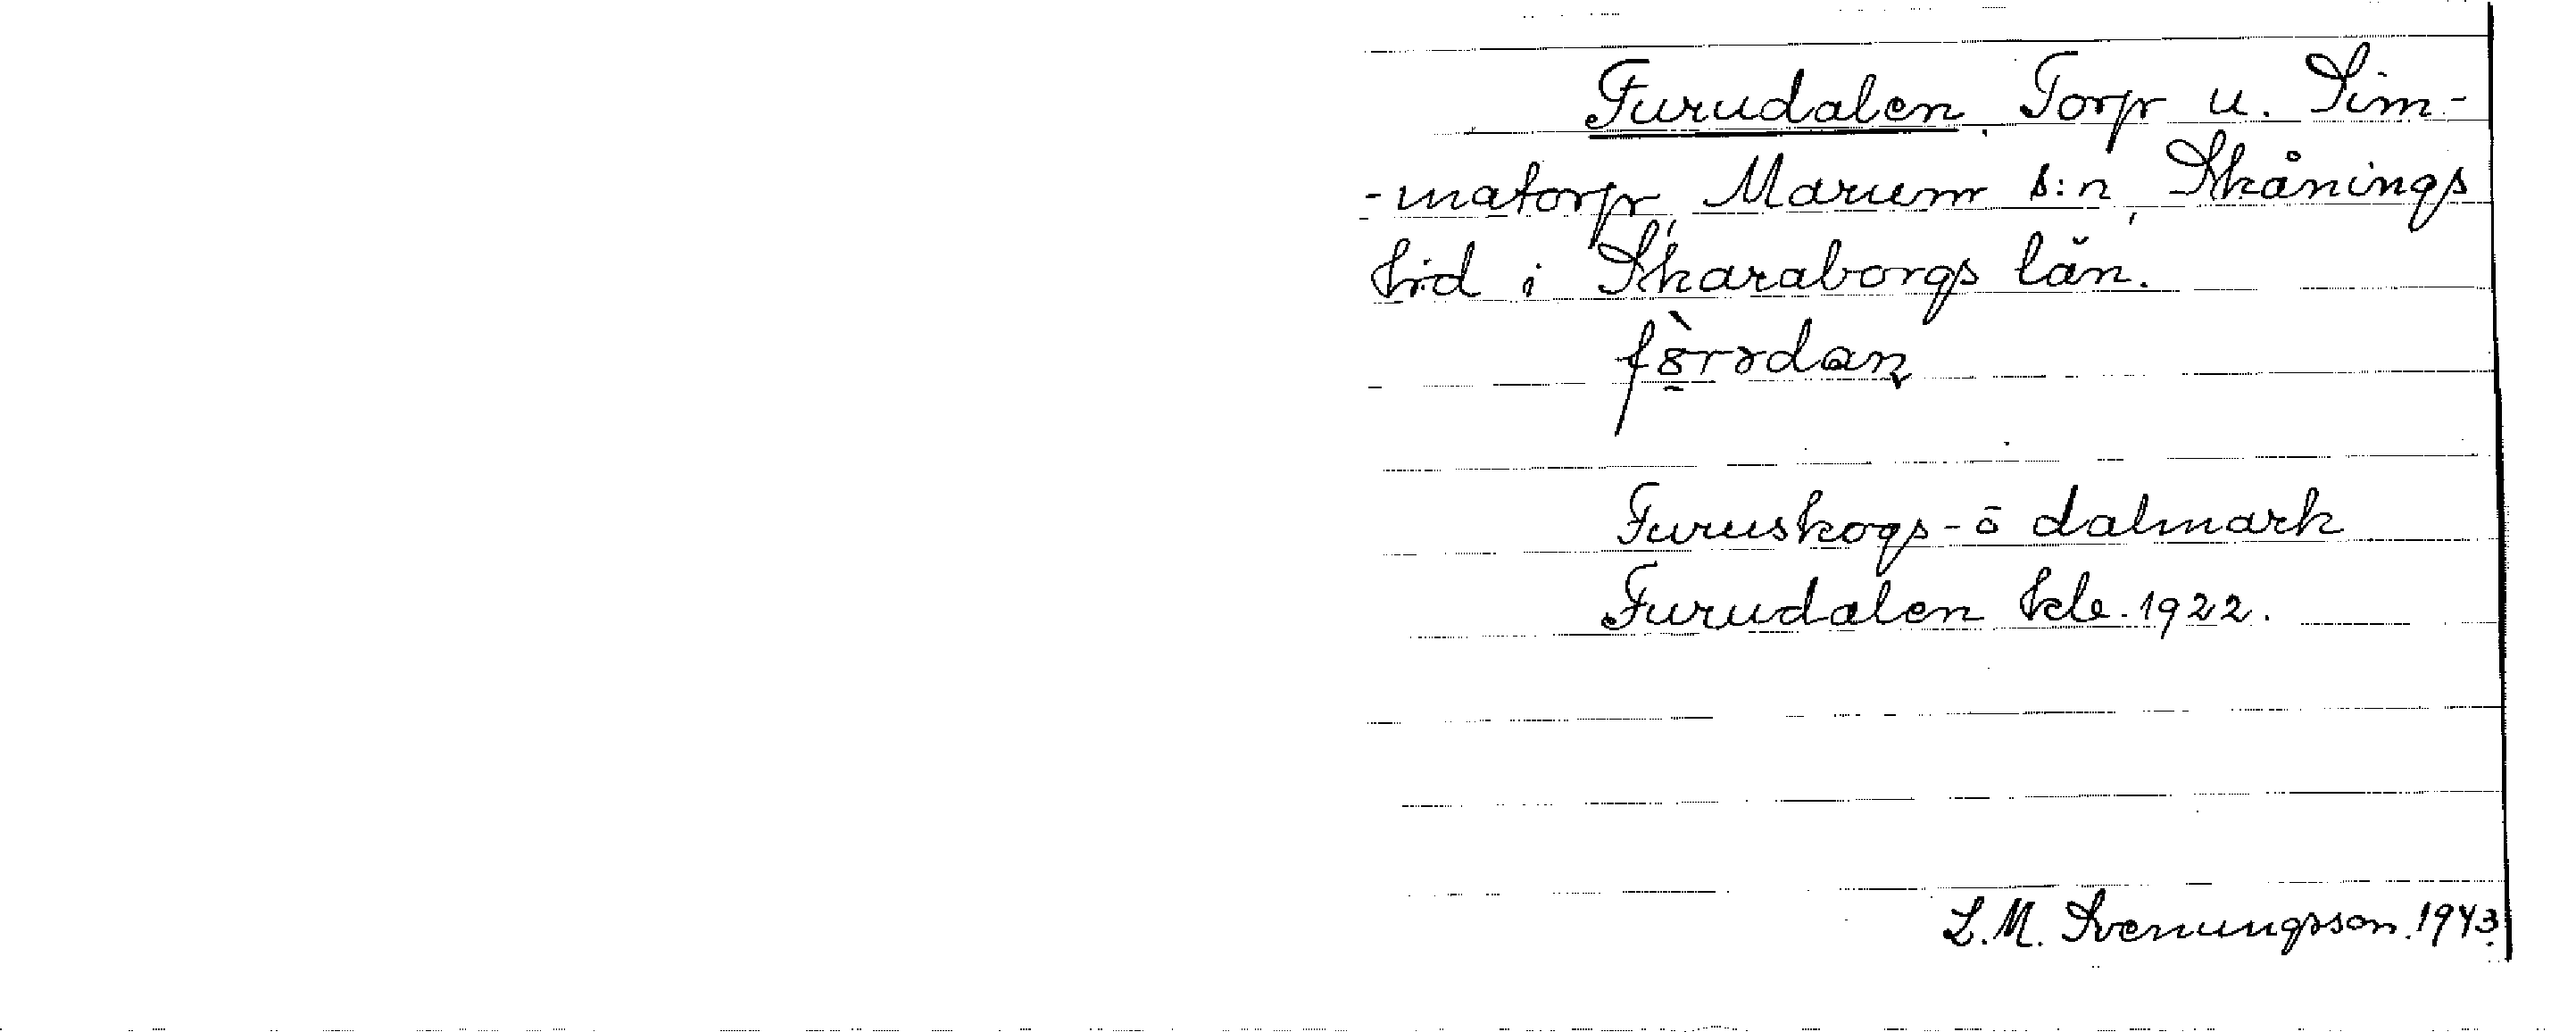 Furudalen. Torp u. Sim-
-matorp, Marum s:n, Skånings
hrd i Skaraborgs län.
Furuskogs- o dalmark
Furudalen kle. 1922.
L.M. Svenungsson. 1943.